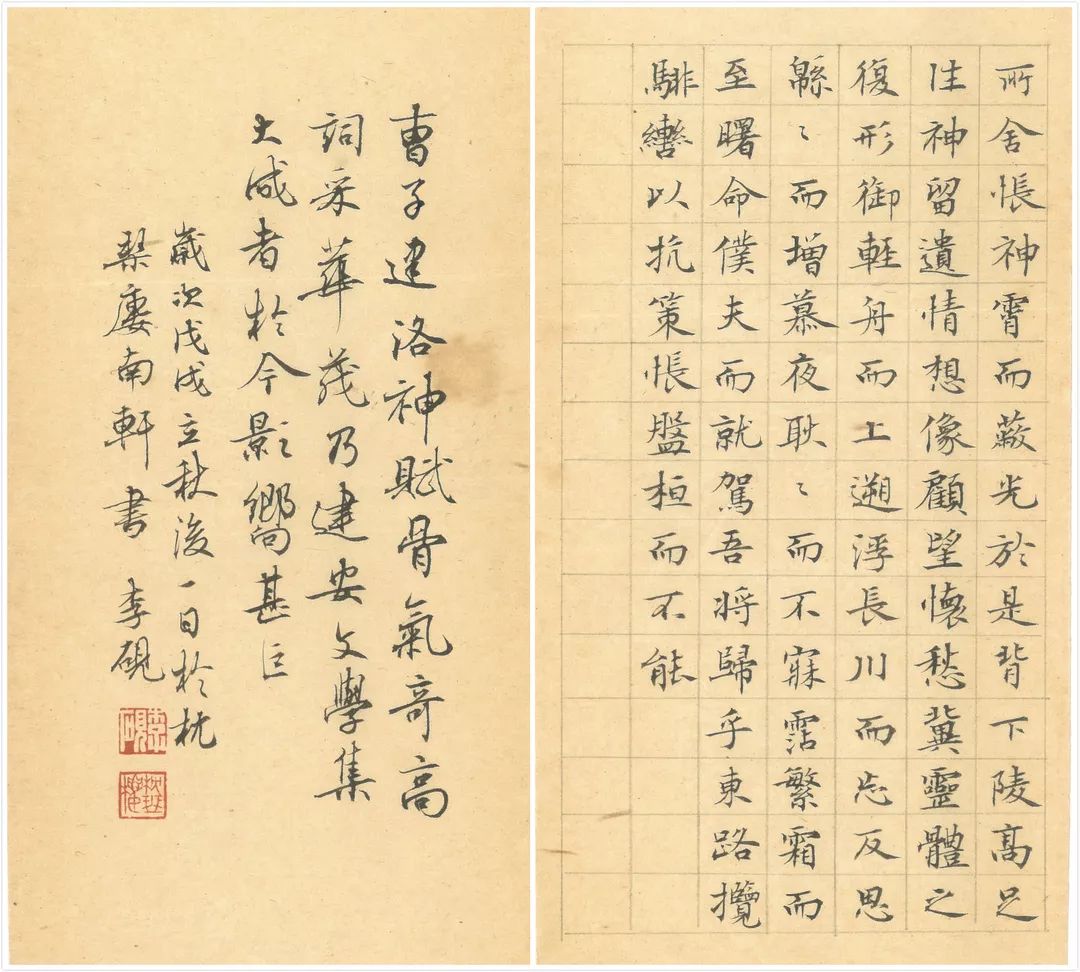 所舍悵神霄而蔽光於是背下陵高足
往神留遺情想像顧望懷愁冀靈體之
復形御輕舟而上遡浮長川而忘反思
緜〻而增慕夜耿〻而不寐霑繁霜而
至曙命僕夫而就駕吾將歸乎東路攬
騑轡以抗策悵盤桓而不能
曹子建洛神賦骨氣奇高
詞采華茂乃建安文學集
大成者於今影嚮甚巨
歲次戊戌立秋後一日於枕
琹廔南軒書 李硯